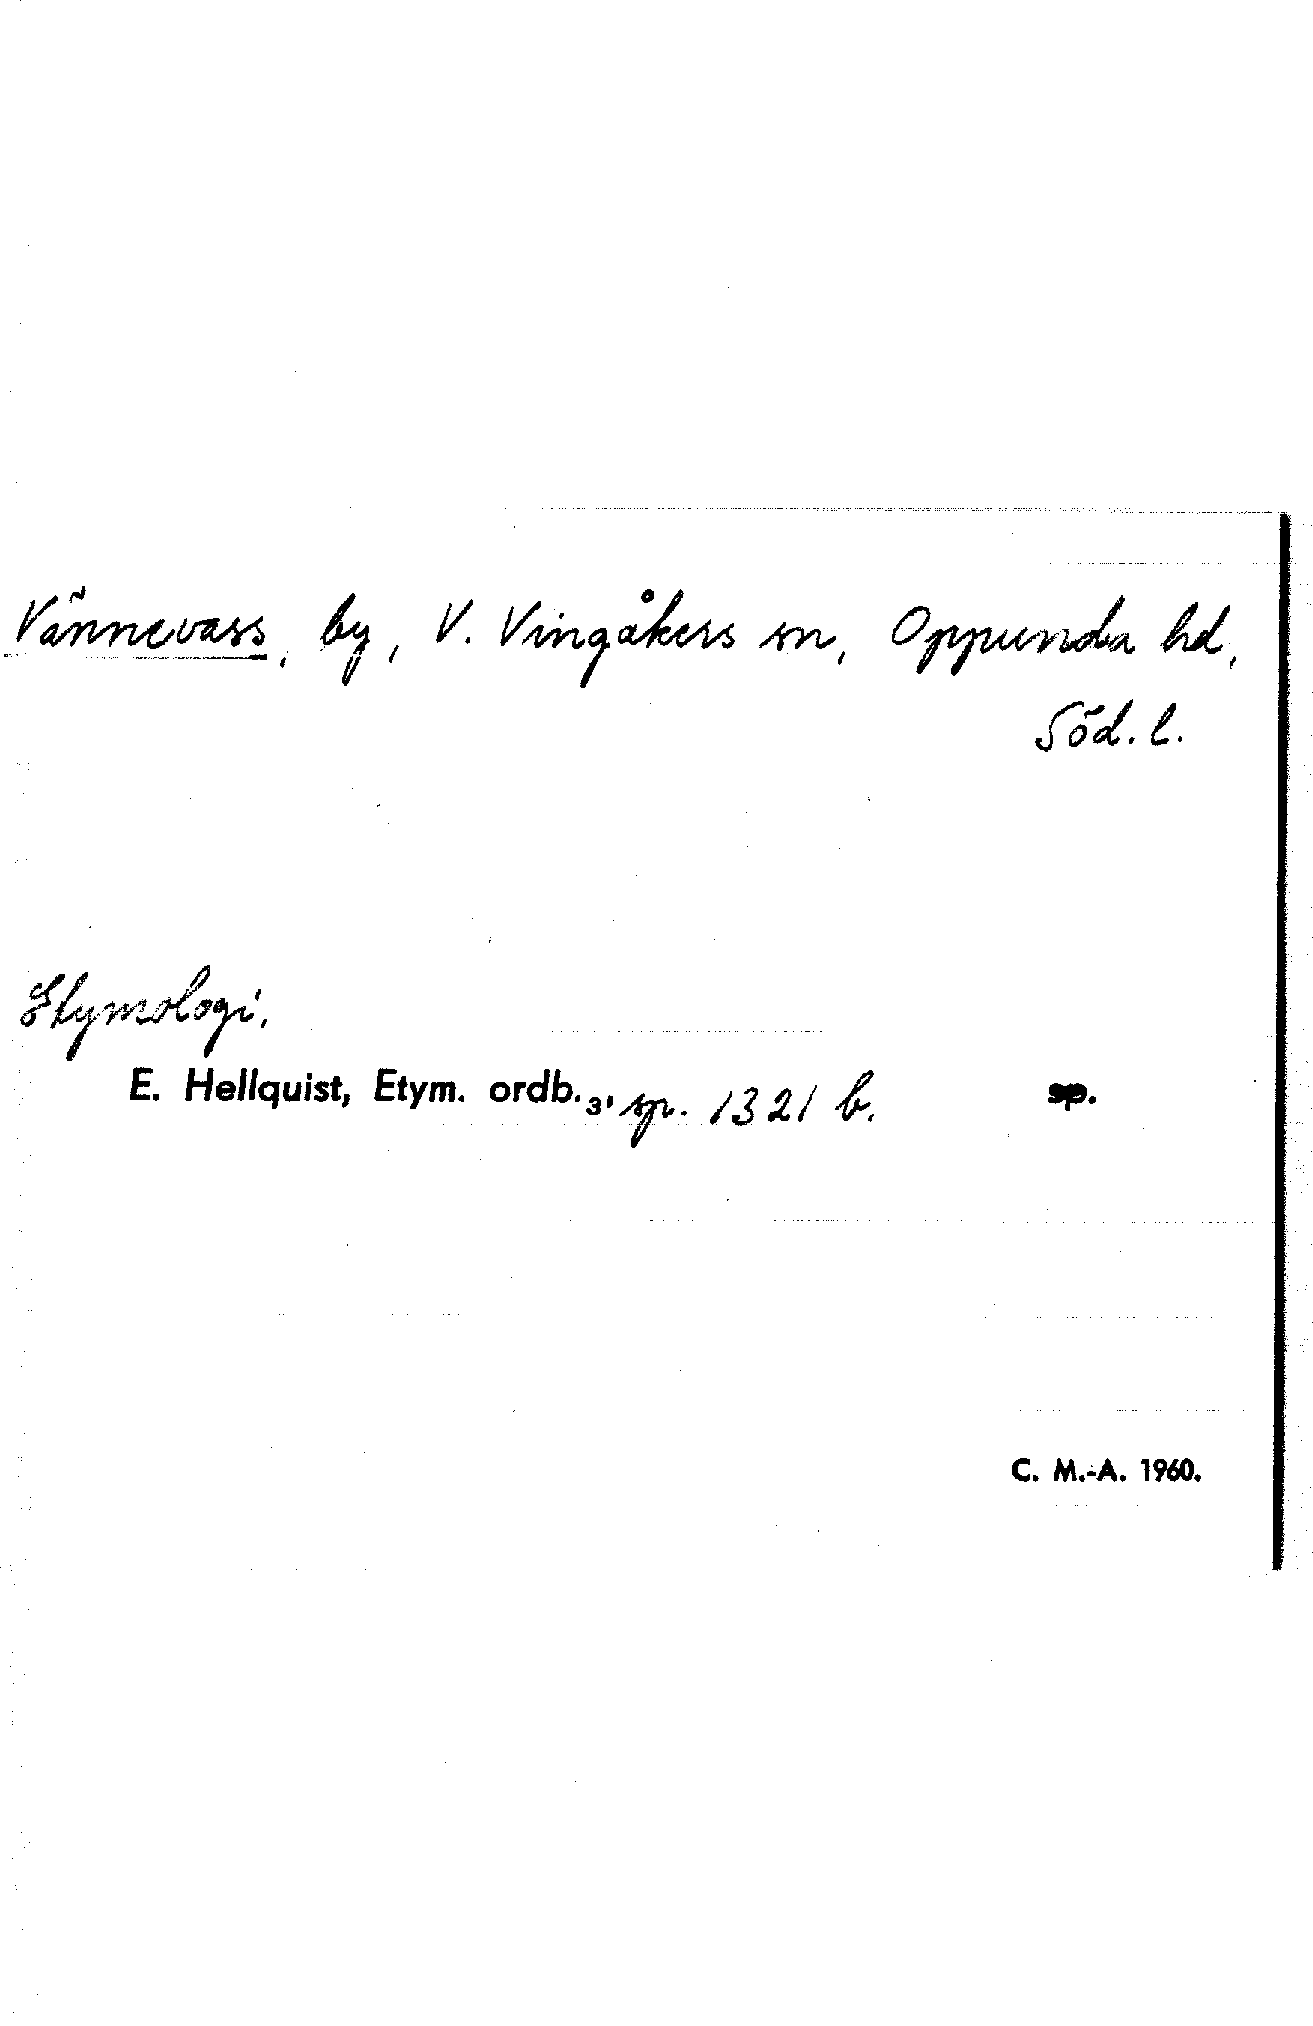 Vännevass, by, V. Vingåkers sn, Oppunda hd,
Söd. l.
Etymologi.
E. Hellquist, Etym. ordb.3, sp. 1321 b. sp.
C. M.-A. 1960.